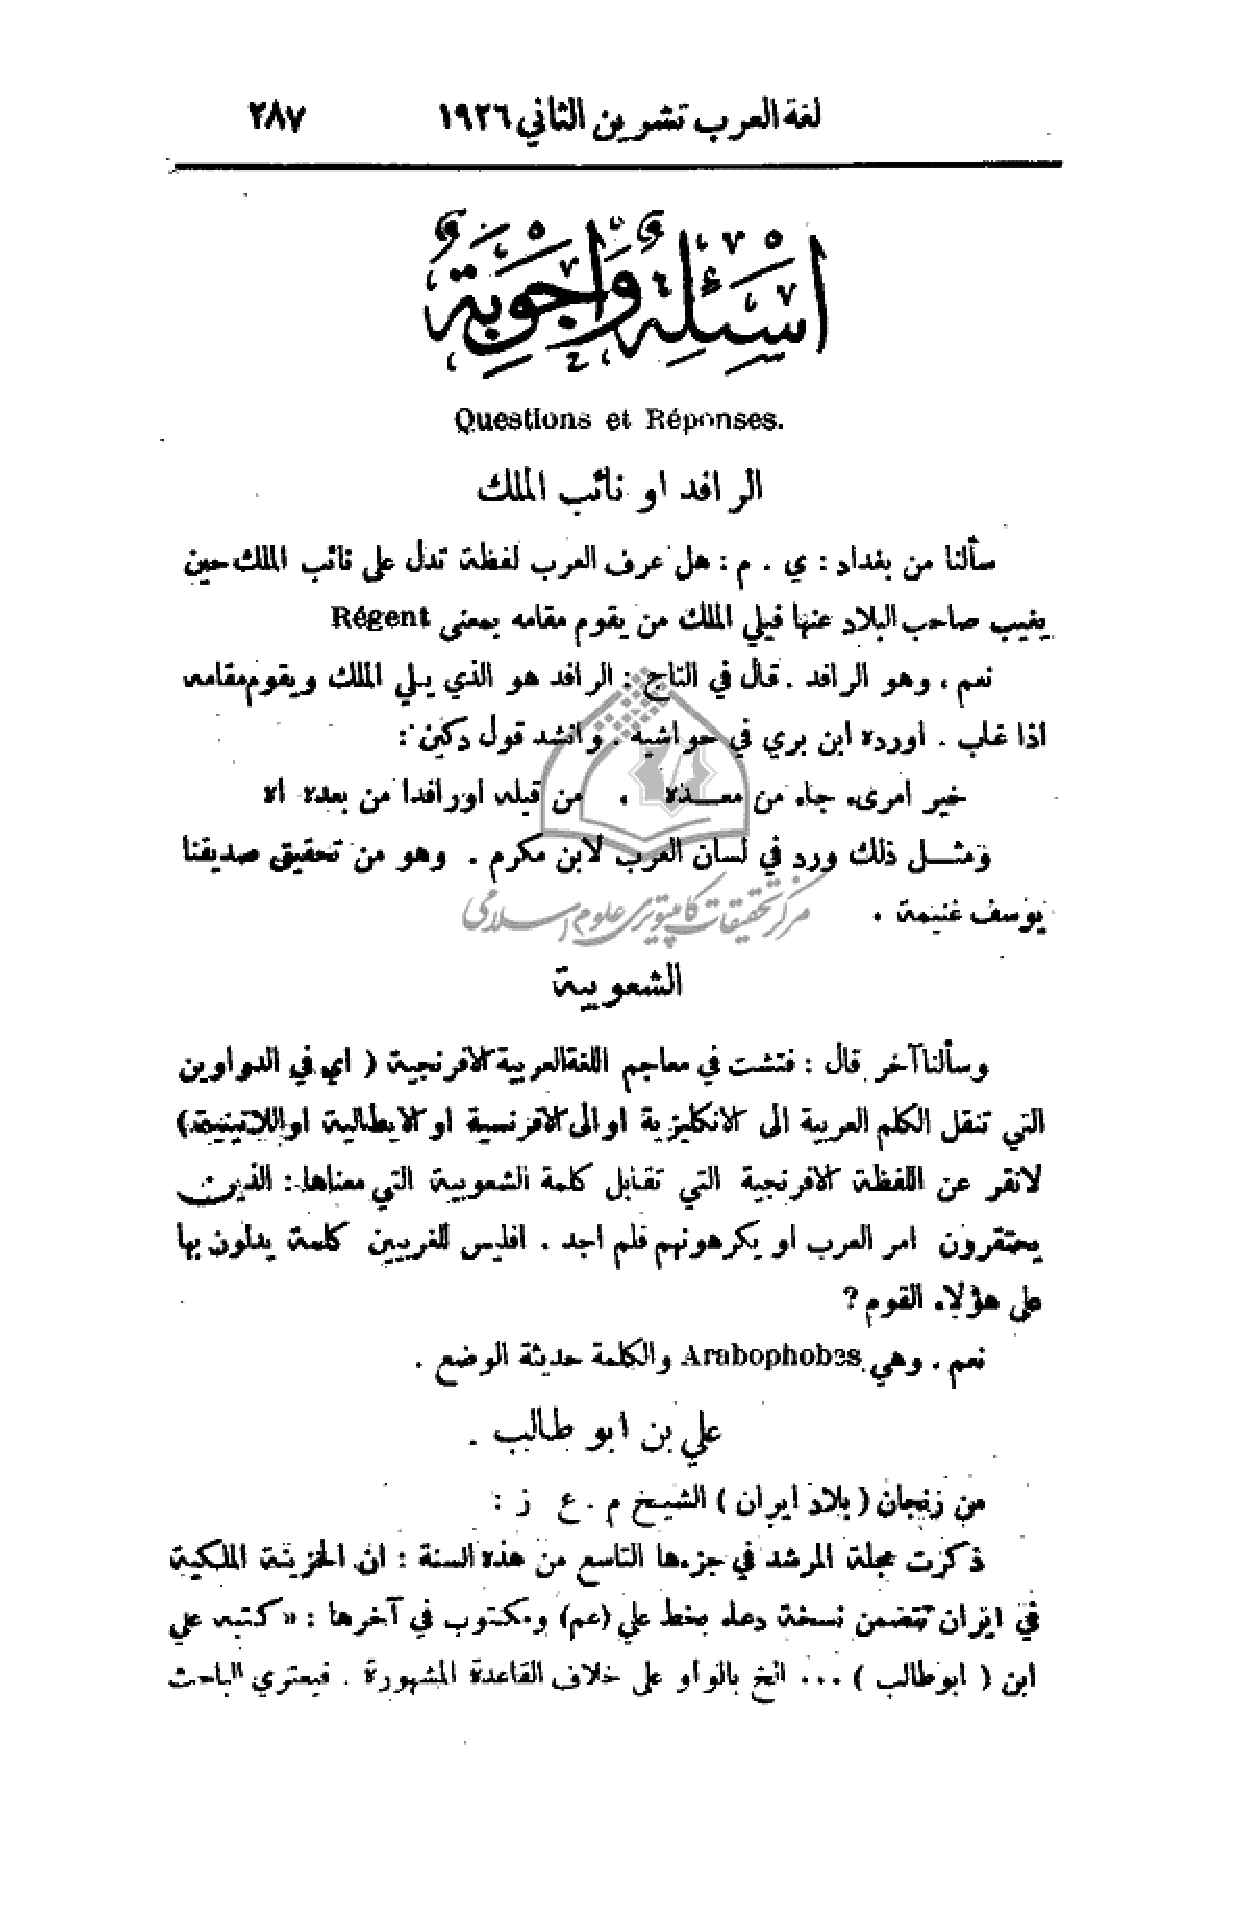 لغة العرب تشرين الثاني ١٩٢٦ ٢٨٧
اَسْئِلَةٌ وَاَجْوِبَةٌ
Questions et Réponses.
الرافد او نائب الملك
سألنا من بغداد : ي . م : هل عرف العرب لفظة تدل على نائب الملك حين
يغيب صاحب البلاد عنها فيلي الملك من يقوم مقامه بمعنى Régent
نعم ، وهو الرافد . قال في التاج : الرافد هو الذي يلي الملك ويقوم مقامه
اذا غاب . اورده ابن بري في حواشيه . وانشد قول دكين :
خير امرىء جاء من معده . من قبله اورافدا من بعده اه
ومثل ذلك ورد في لسان العرب لابن مكرم . وهو من تحقيق صديقنا
يوسف غنيمة .
مركز تحقيقات كامپيوترى علوم اسلامى
الشعوبية
وسألنا آخر قال : فتشت في معاجم اللغة العربية الافرنجية ( اي في الدواوين
التي تنقل الكلم العربية الى الانكليزية او الى الافرنسية او الايطالية او اللاتينية )
لانقر عن اللفظة الافرنجية التي تقابل كلمة الشعوبية التي معناها : الذين
يحتقرون امر العرب او يكرهونهم فلم اجد . افليس للغربيين كلمة يدلون بها
على هؤلاء القوم ؟
نعم . وهي Arabophobes والكلمة حديثة الوضع .
علي بن ابو طالب .
من زنجان ( بلاد ايران ) الشيخ م . ع ز :
ذكرت مجلة المرشد في جزءها التاسع من هذه السنة : ان الخزينة الملكية
في ايران تتضمن نسخة دعاء بخط علي (عم) ومكتوب في آخرها : « كتبه علي
ابن ( ابوطالب ) ... الخ بالواو على خلاف القاعدة المشهورة . فيعتري الباحث